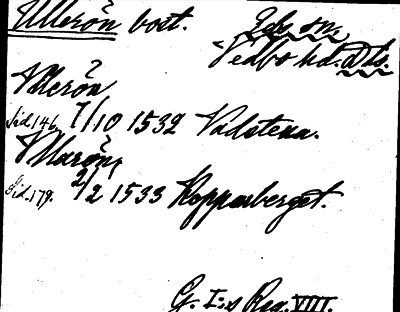 Ullerön bort. Eds sn,
Vedbo hd. Dls.
Vllerön
Sid. 146. 7/10 1532 Vadstena.
Vllarön,
Sid. 179. 2/2 1533 Kopparberget.
G. I:s Reg. VIII.